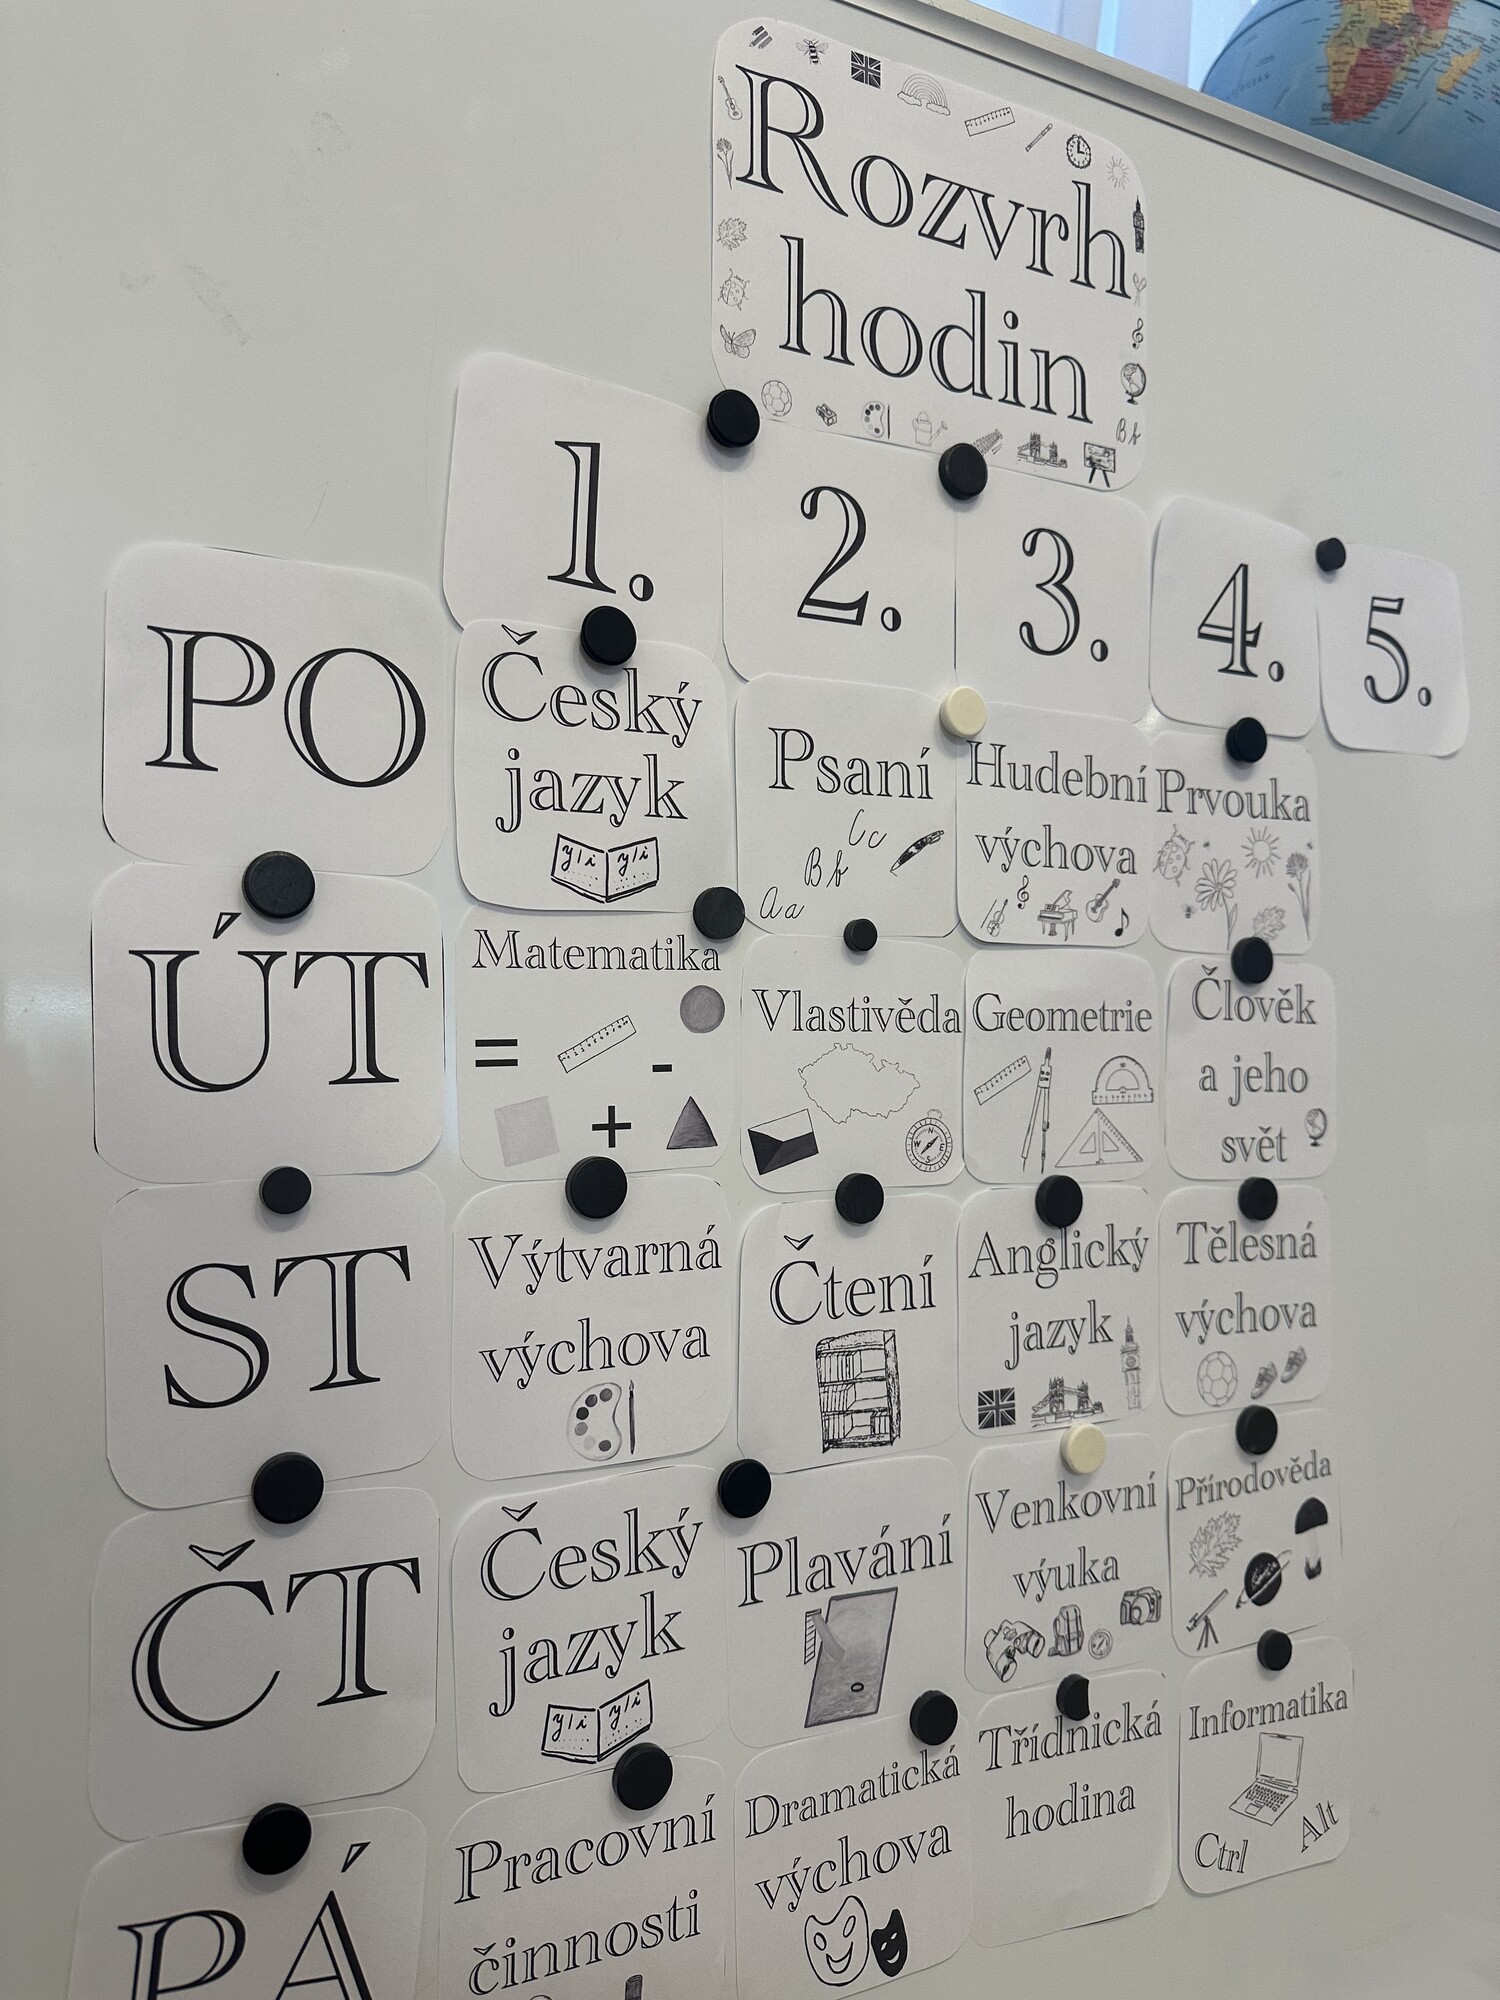 Rozvrh
hodin
Bb
1.
2.
3.
4.
5.
PO
Český
jazyk
y/i y/i
Psaní
Cc
Bb
Aa
Hudební
výchova
Prvouka
ÚT
Matematika
=
-
+
Vlastivěda
N
W E
S
Geometrie
Člověk
a jeho
svět
ST
Výtvarná
výchova
Čtení
Anglický
jazyk
Tělesná
výchova
ČT
Český
jazyk
y/i y/i
Plavání
Venkovní
výuka
Přírodověda
PÁ
Pracovní
činnosti
Dramatická
výchova
Třídnická
hodina
Informatika
Ctrl
Alt